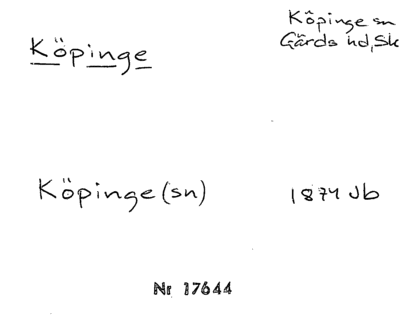 Köpinge
Köpinge sn
Gärds hd, Sk
Köpinge (sn)
1874 Jb
Nr 17644